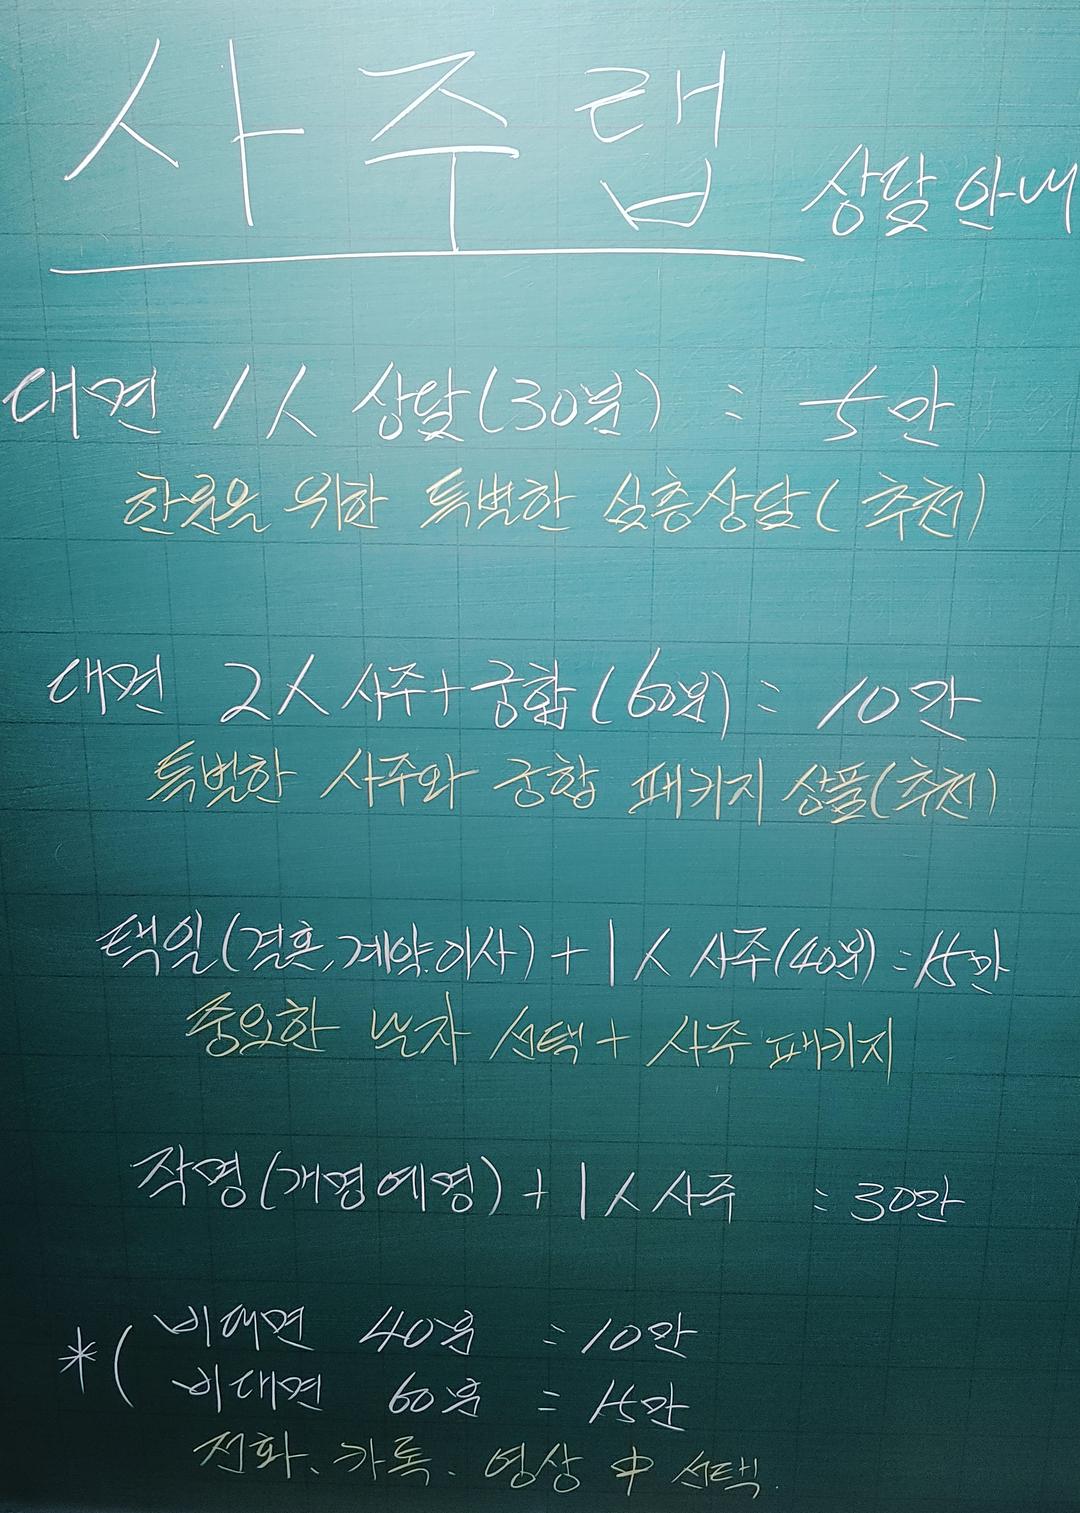 사주랩 상담 안내
대면 1人 상담(30분) : 5만
한분을 위한 특별한 심층상담(추천)
대면 2人 사주+궁합(60분) : 10만
특별한 사주와 궁합 패키지 상품(추천)
택일(결혼,계약.이사)+1人 사주(40분) : 15만
중요한 날자 선택 + 사주 패키지
작명(개명 예명) + 1人 사주 : 30만
*( 비대면 40분 : 10만
비대면 60분 : 15만
전화. 카톡. 영상 中 선택.